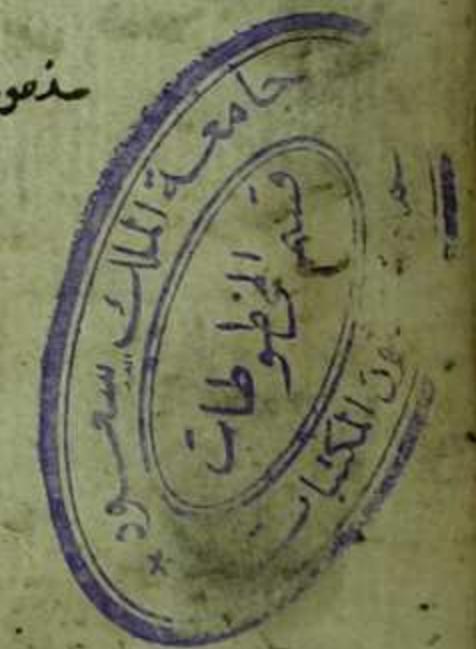 جامعة الملك سعود
قسم
المخطوطات
شؤون المكتبات